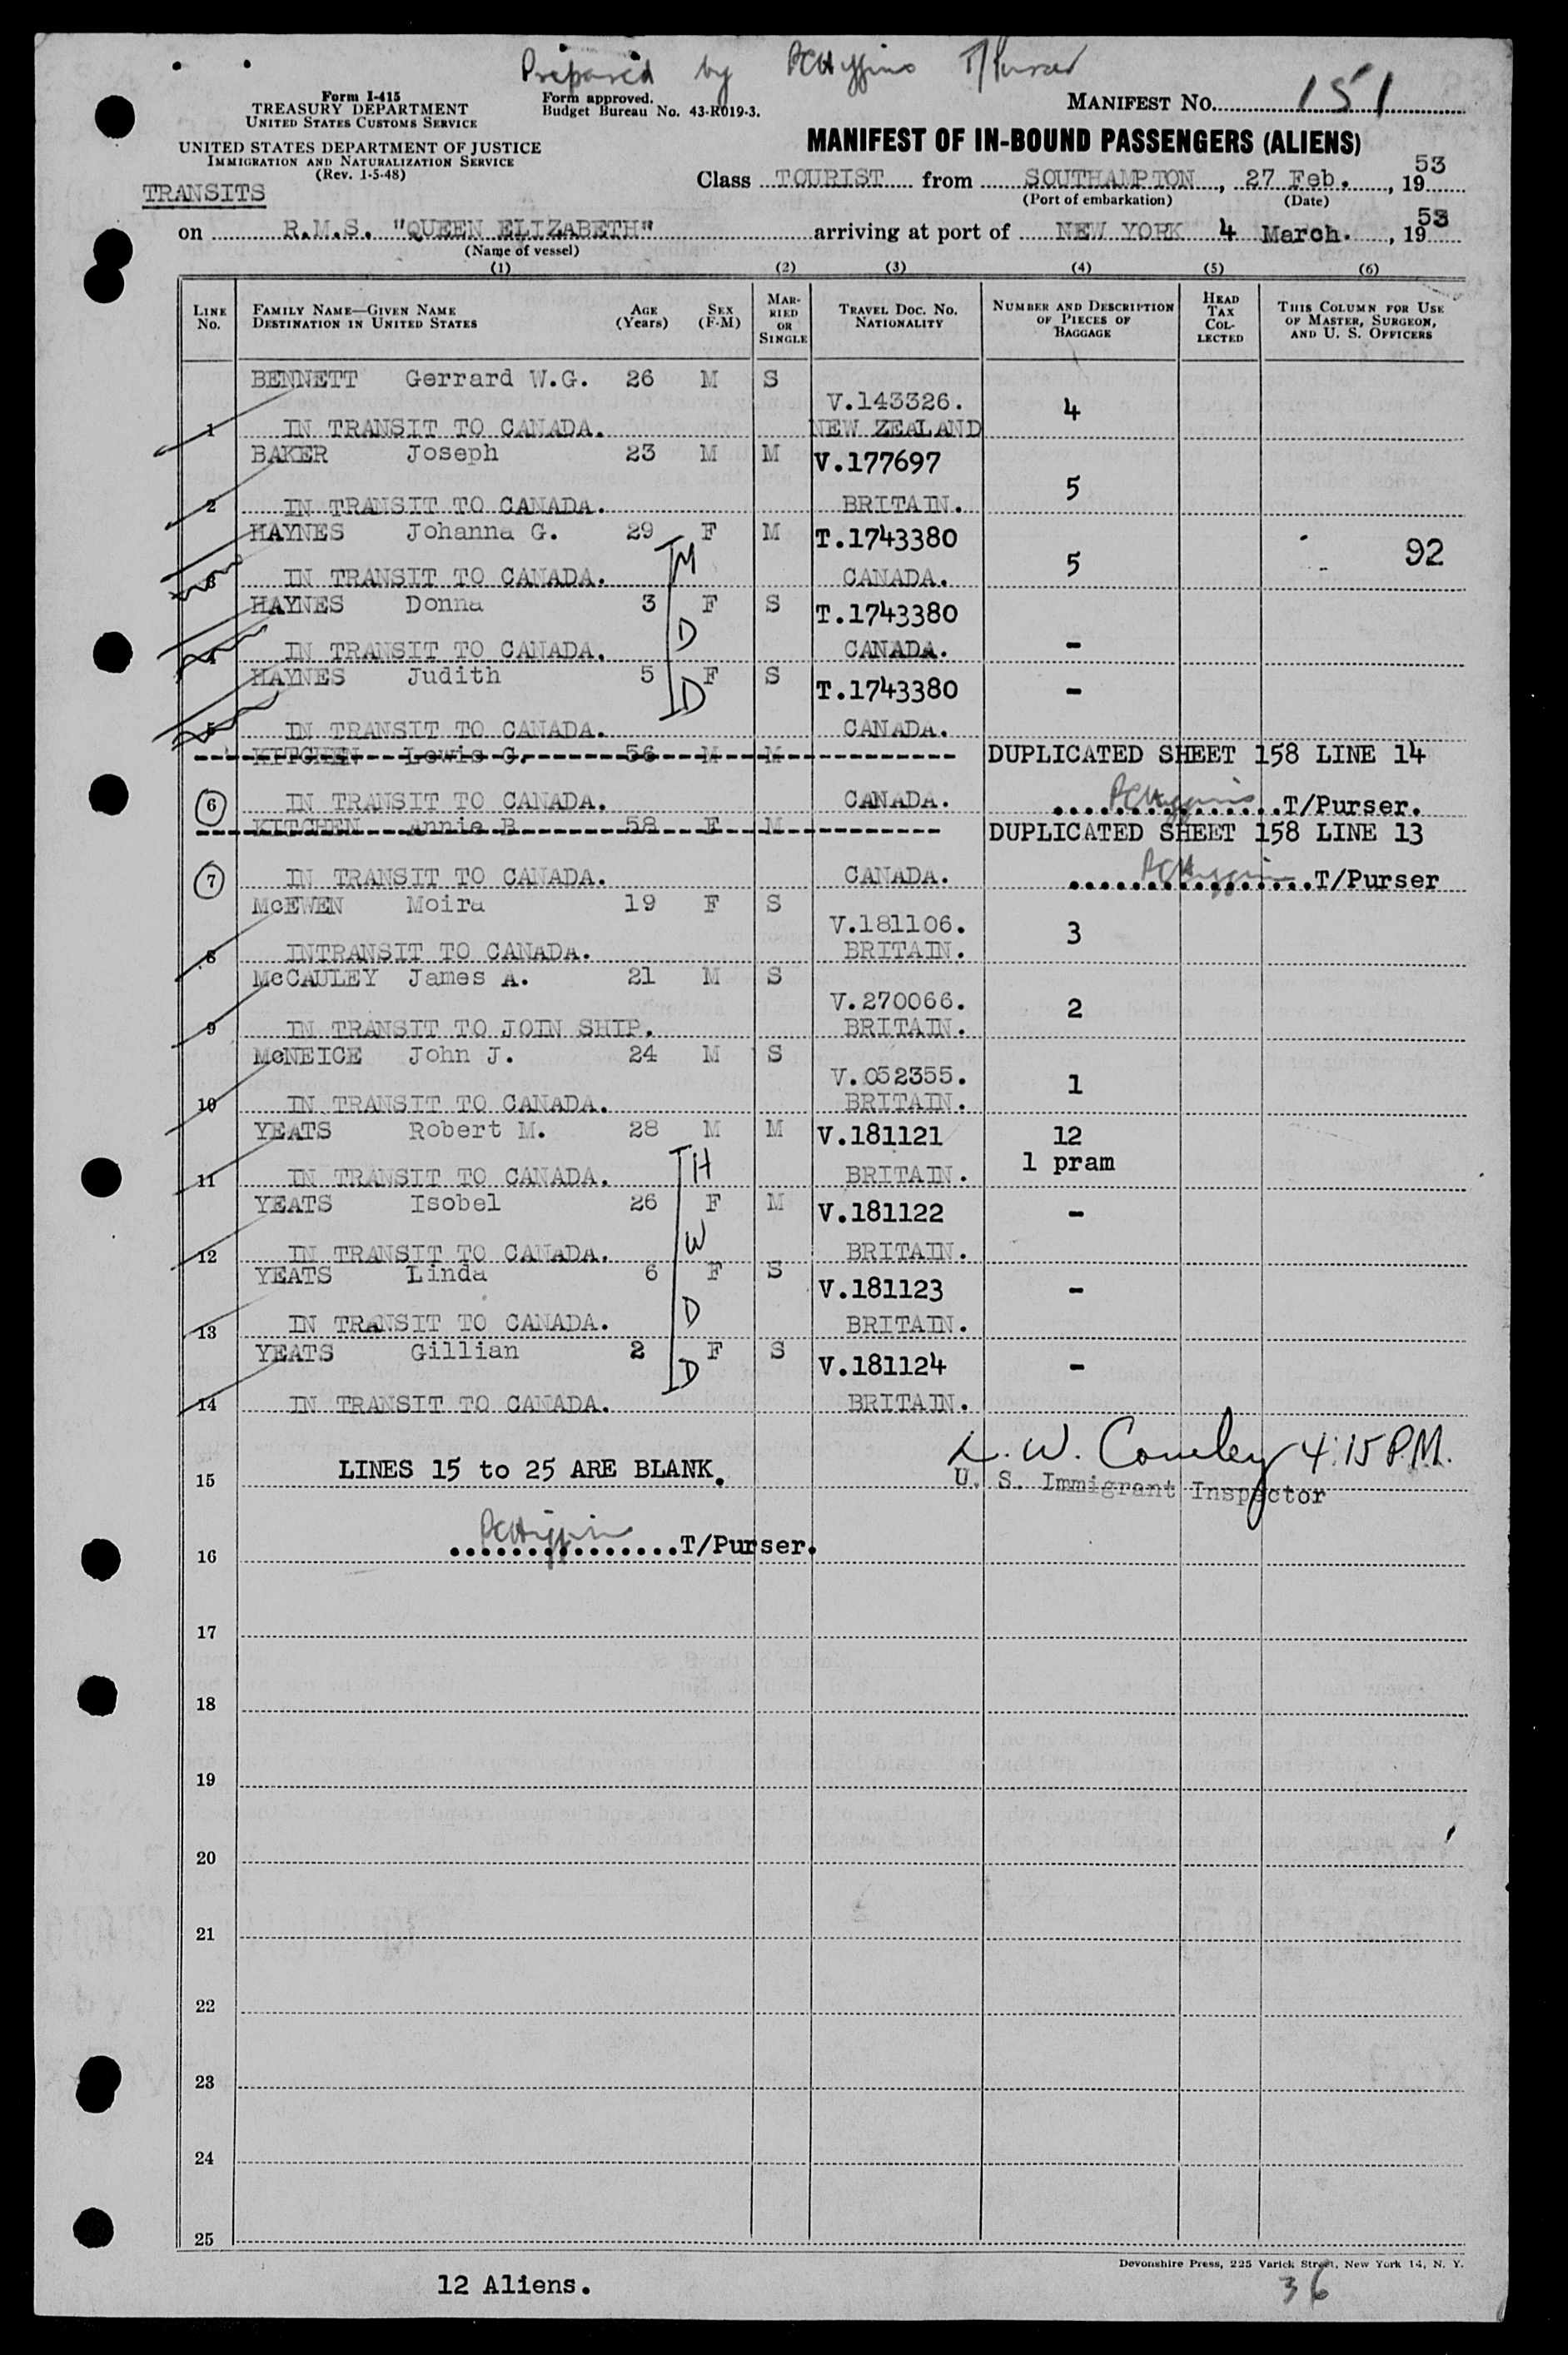 Prepared by PCHiggins T/Purser
Form I-415
TREASURY DEPARTMENT
UNITED STATES CUSTOMS SERVICE
Form approved.
Budget Bureau No. 43-R019-3.
MANIFEST NO. 151
UNITED STATES DEPARTMENT OF JUSTICE
IMMIGRATION AND NATURALIZATION SERVICE
(Rev. 1-5-48)
MANIFEST OF IN-BOUND PASSENGERS (ALIENS)
TRANSITS
Class TOURIST from SOUTHAMPTON, 27 Feb., 1953
(Port of embarkation) (Date)
on R.M.S. "QUEEN ELIZABETH" arriving at port of NEW YORK 4 March., 1953
(Name of vessel)
(1) (2) (3) (4) (5) (6)
LINE NO. FAMILY NAME—GIVEN NAME DESTINATION IN UNITED STATES AGE (Years) SEX (F-M) MARRIED OR SINGLE TRAVEL DOC. NO. NATIONALITY NUMBER AND DESCRIPTION OF PIECES OF BAGGAGE HEAD TAX COLLECTED THIS COLUMN FOR USE OF MASTER, SURGEON, AND U. S. OFFICERS
BENNETT Gerrard W.G. 26 M S V.143326. 4
1 IN TRANSIT TO CANADA. NEW ZEALAND
BAKER Joseph 23 M M V.177697 5
2 IN TRANSIT TO CANADA. BRITAIN.
HAYNES Johanna G. 29 F M T.1743380 92
3 IN TRANSIT TO CANADA. M CANADA. 5
HAYNES Donna 3 F S T.1743380
4 IN TRANSIT TO CANADA. D CANADA. -
HAYNES Judith 5 F S T.1743380 -
5 IN TRANSIT TO CANADA. D CANADA.
KITCHEN Lewis G. 56 M M DUPLICATED SHEET 158 LINE 14
6 IN TRANSIT TO CANADA. CANADA. PCHiggins T/Purser.
KITCHEN Annie B 58 F M DUPLICATED SHEET 158 LINE 13
7 IN TRANSIT TO CANADA. CANADA. PCHiggins T/Purser
McEWEN Moira 19 F S V.181106. 3
8 INTRANSIT TO CANADA. BRITAIN.
McCAULEY James A. 21 M S V.270066. 2
9 IN TRANSIT TO JOIN SHIP. BRITAIN.
McNEICE John J. 24 M S V.052355. 1
10 IN TRANSIT TO CANADA. BRITAIN.
YEATS Robert M. 28 M M V.181121 12
1 pram
11 IN TRANSIT TO CANADA. H BRITAIN.
YEATS Isobel 26 F M V.181122 -
12 IN TRANSIT TO CANADA. W BRITAIN.
YEATS Linda 6 F S V.181123 -
13 IN TRANSIT TO CANADA. D BRITAIN.
YEATS Gillian 2 F S V.181124 -
14 IN TRANSIT TO CANADA. D BRITAIN.
L. W. Cowley 4:15 P.M.
15 LINES 15 to 25 ARE BLANK. U. S. Immigrant Inspector
16 PCHiggins T/Purser.
17
18
19
20
21
22
23
24
25
Devonshire Press, 225 Varick Street, New York 14, N. Y.
12 Aliens. 36